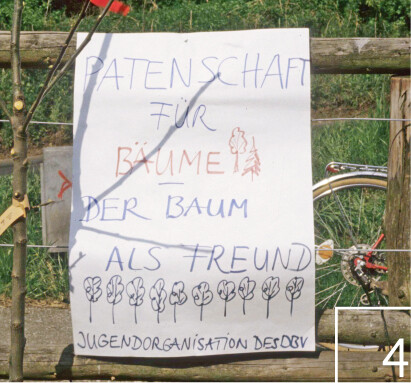 PATENSCHAFT
FÜR
BÄUME
–
DER BAUM
ALS FREUND
JUGENDORGANISATION DES DBV
4